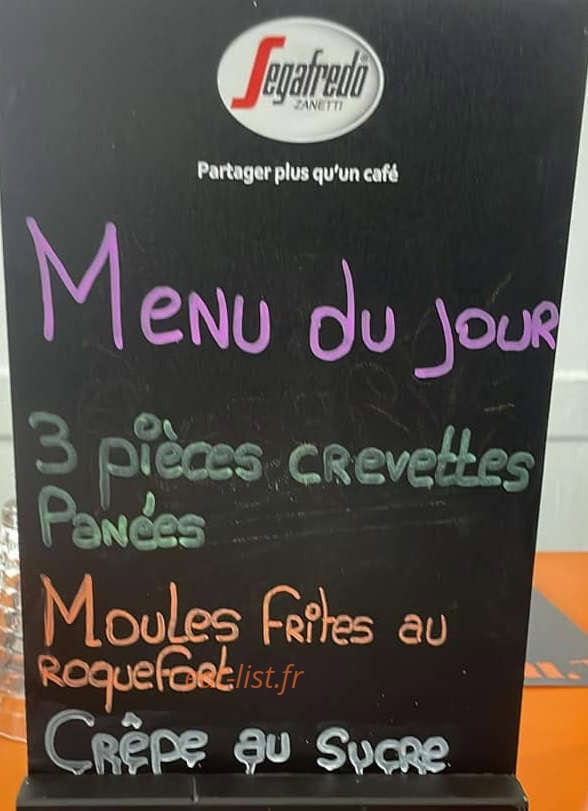 Segafredo
ZANETTI
Partager plus qu'un café
Menu du jour
3 pièces crevettes
Panées
Moules frites au
roquefort
eat-list.fr
Crêpe au sucre